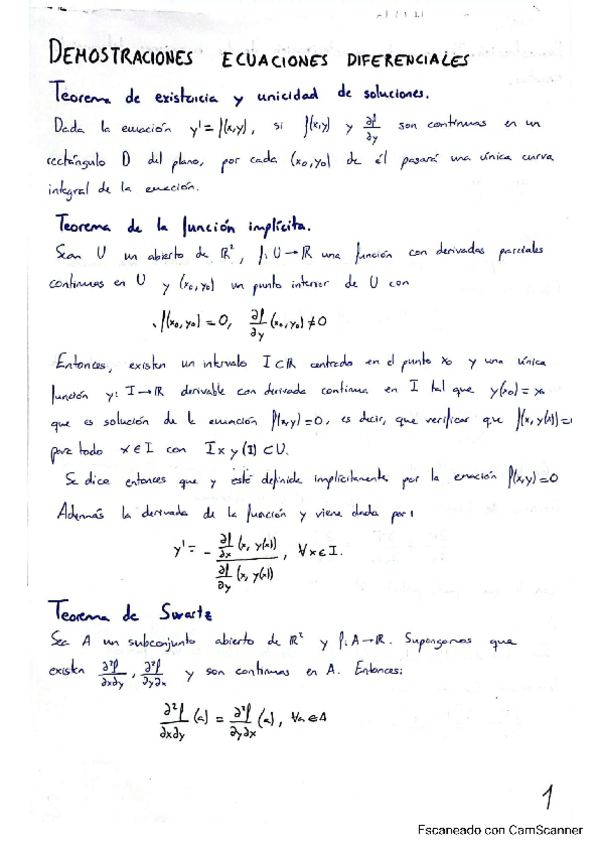 DEMOSTRACIONES ECUACIONES DIFERENCIALES
Teorema de existencia y unicidad de soluciones.
Dada la ecuación y' = f(x,y), si f(x,y) y ∂f/∂y son continuas en un
rectángulo D del plano, por cada (x₀,y₀) de él pasará una única curva
integral de la ecuación.
Teorema de la función implícita.
Sean U un abierto de ℝ², f: U→ℝ una función con derivadas parciales
continuas en U y (x₀,y₀) un punto interior de U con
f(x₀,y₀)=0, ∂f/∂y (x₀,y₀)≠0
Entonces, existen un intervalo I⊂ℝ centrado en el punto x₀ y una única
función y: I→ℝ derivable con derivada continua en I tal que y(x₀) =
que es solución de la ecuación f(x,y)=0, es decir, que verificar que f(x,y(x))=
para todo x∈I con I x y(I) ⊂ U.
Se dice entonces que y está definida implícitamente por la ecuación f(x,y)=0
Además la derivada de la función y viene dada por:
y' = - ∂f/∂x (x, y(x)) / ∂f/∂y (x, y(x)), ∀x∈I.
Teorema de Swartz
Sea A un subconjunto abierto de ℝ² y f: A→ℝ. Supongamos que
existen ∂²f/∂x∂y, ∂²f/∂y∂x y son continuas en A. Entonces:
∂²f/∂x∂y (a) = ∂²f/∂y∂x (a), ∀a∈A
1
Escaneado con CamScanner